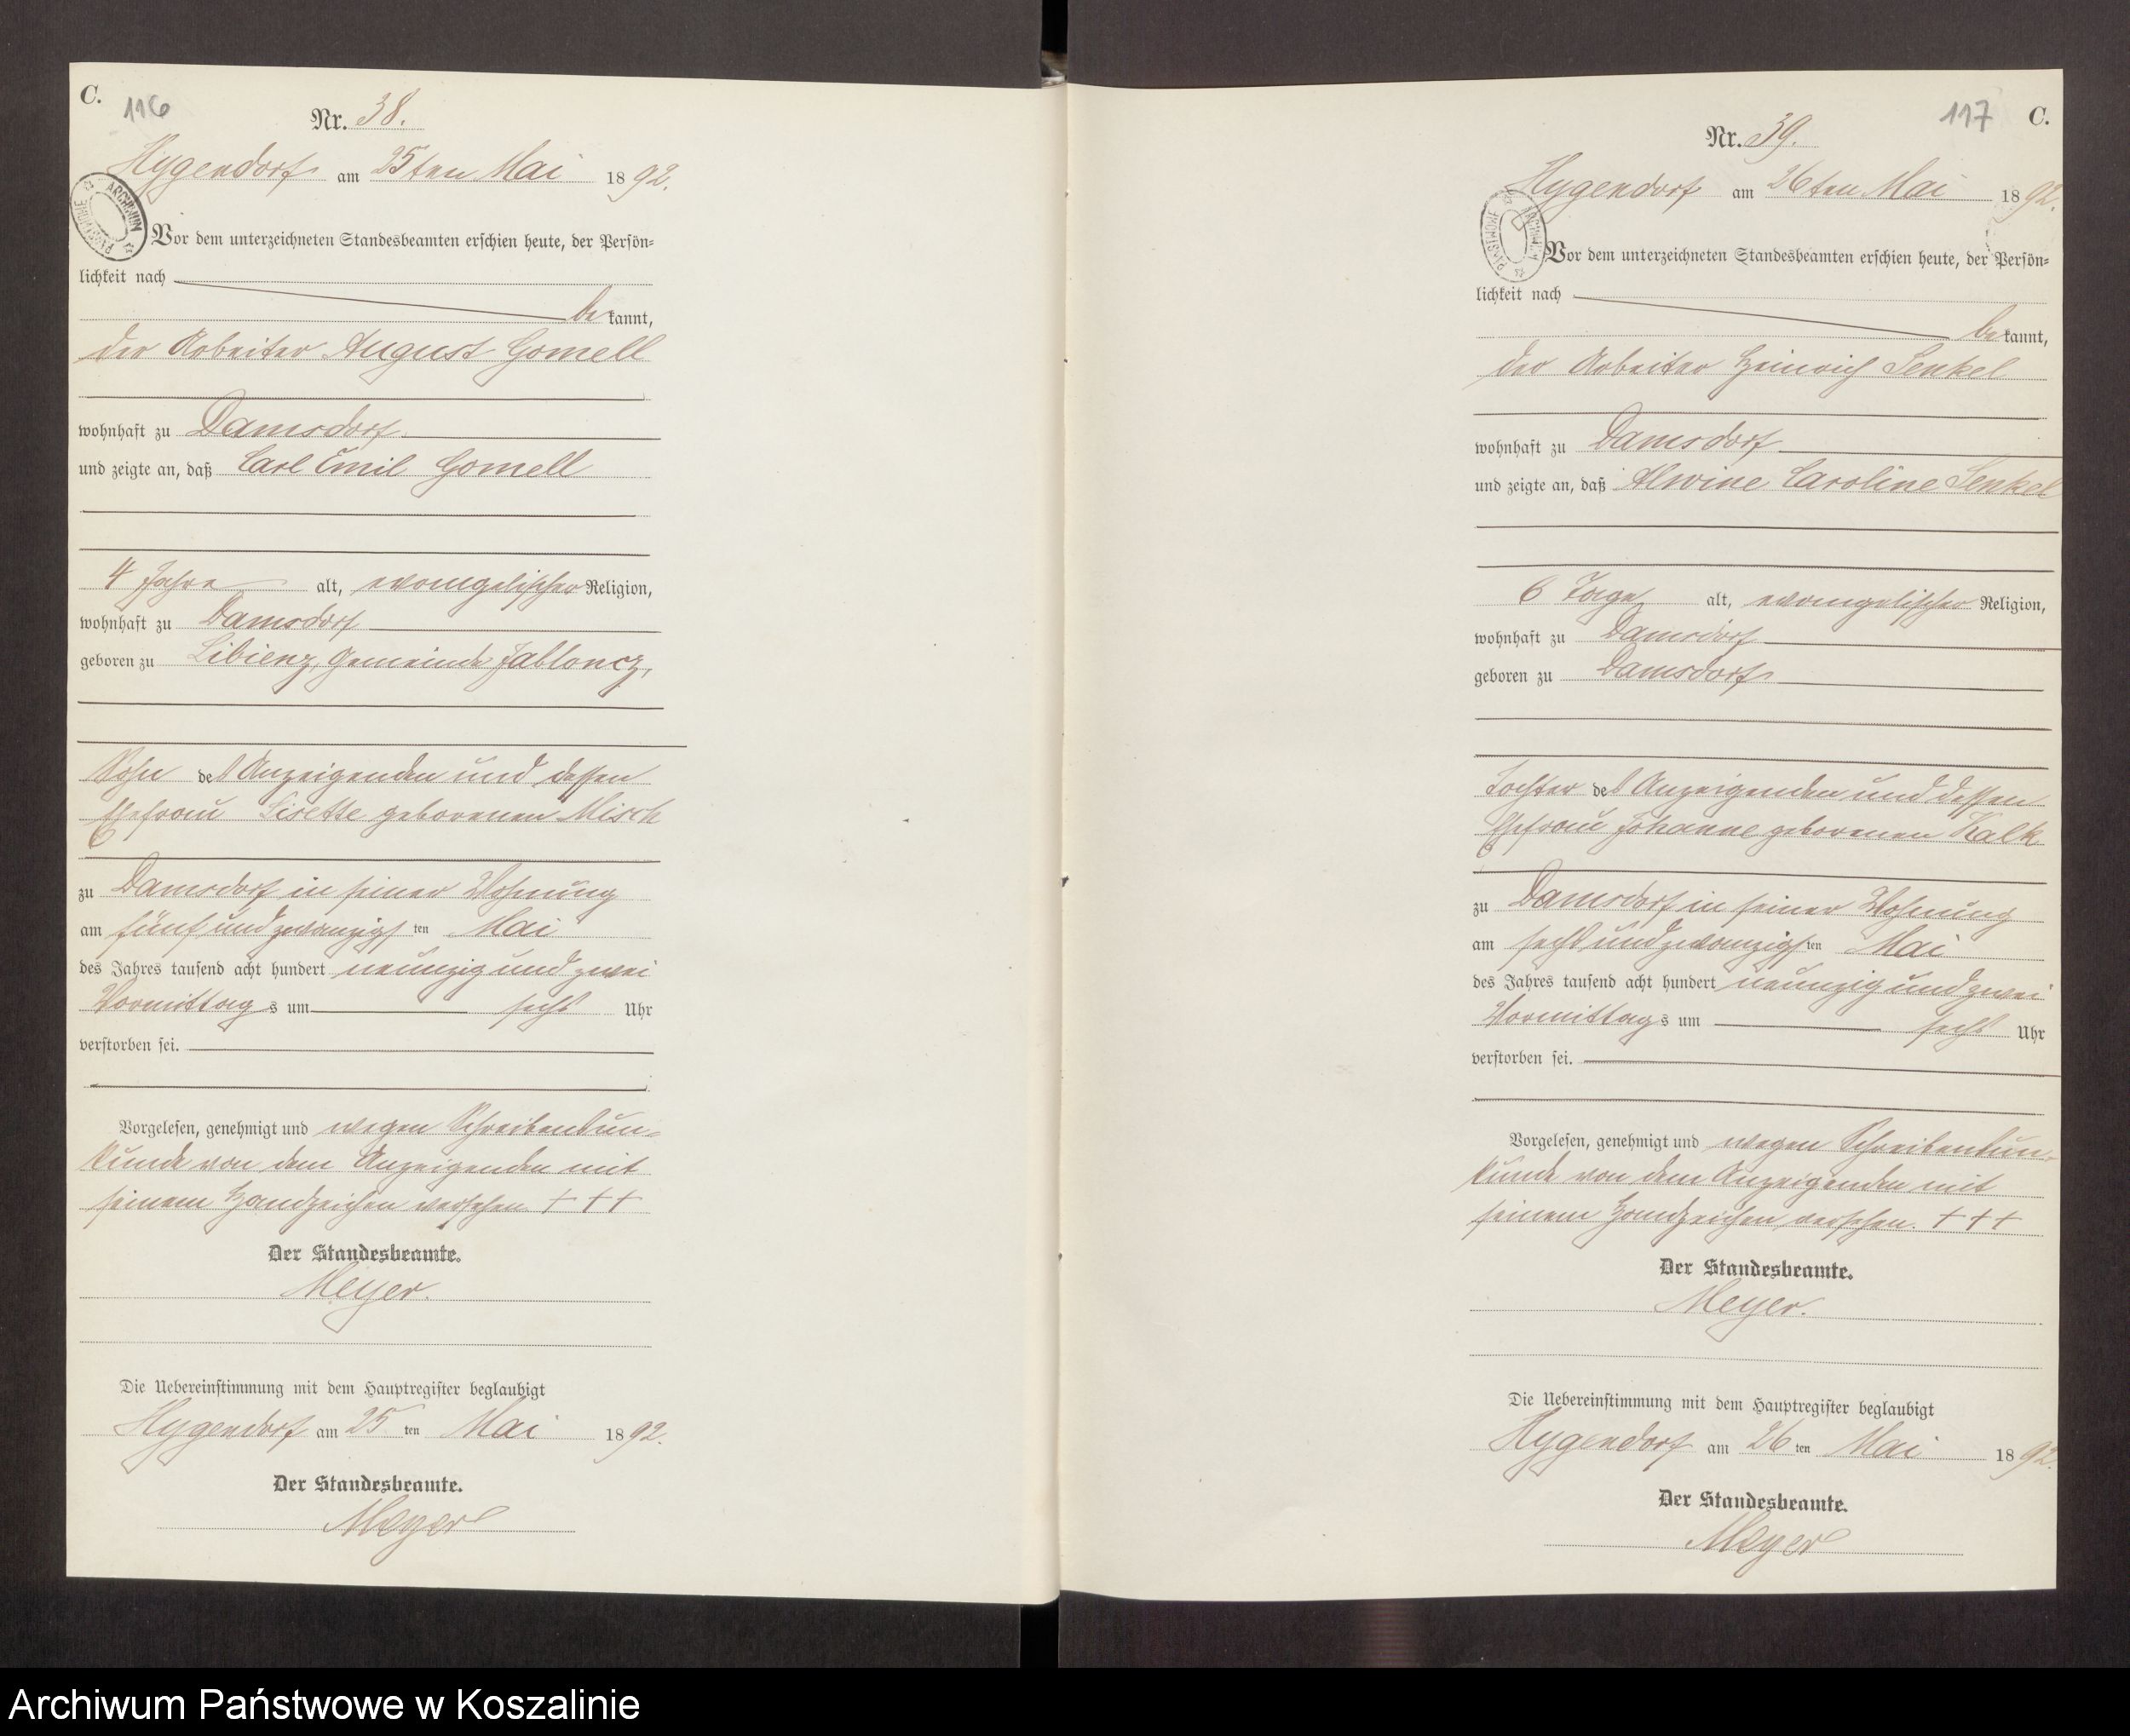 C.
116
Nr. 38.
Hygendorf am 25ten Mai 1892.
ARCHIWUM PAŃSTWOWE
Vor dem unterzeichneten Standesbeamten erschien heute, der Persön=
lichkeit nach
bekannt,
der Arbeiter August Gomell
wohnhaft zu Damsdorf
und zeigte an, daß Carl Emil Gomell
4 Jahre alt, evangelischer Religion,
wohnhaft zu Damsdorf
geboren zu Libienz, Gemeinde Jabloncz,
Sohn des Anzeigenden und dessen
Ehefrau Lisette geborenen Misch
zu Damsdorf in seiner Wohnung
am fünf und zwanzigsten Mai
des Jahres tausend acht hundert neunzig und zwei
Vormittags um sechs Uhr
verstorben sei.
Vorgelesen, genehmigt und wegen Schreibensun=
kunde von dem Anzeigenden mit
seinem Handzeichen versehen +++
Der Standesbeamte.
Meyer.
Die Uebereinstimmung mit dem Hauptregister beglaubigt
Hygendorf am 25ten Mai 1892.
Der Standesbeamte.
Meyer
117
C.
Nr. 39.
Hygendorf am 26ten Mai 1892.
ARCHIWUM PAŃSTWOWE
Vor dem unterzeichneten Standesbeamten erschien heute, der Persön=
lichkeit nach
bekannt,
der Arbeiter Heinrich Senkel
wohnhaft zu Damsdorf
und zeigte an, daß Alwine Caroline Senkel
6 Tage alt, evangelischer Religion,
wohnhaft zu Damsdorf
geboren zu Damsdorf
Tochter des Anzeigenden und dessen
Ehefrau Johanne geborenen Kalk
zu Damsdorf in seiner Wohnung
am sechs und zwanzigsten Mai
des Jahres tausend acht hundert neunzig und zwei
Vormittags um sechs Uhr
verstorben sei.
Vorgelesen, genehmigt und wegen Schreibensun=
kunde von dem Anzeigenden mit
seinem Handzeichen versehen. +++
Der Standesbeamte.
Meyer.
Die Uebereinstimmung mit dem Hauptregister beglaubigt
Hygendorf am 26ten Mai 1892.
Der Standesbeamte.
Meyer
Archiwum Państwowe w Koszalinie